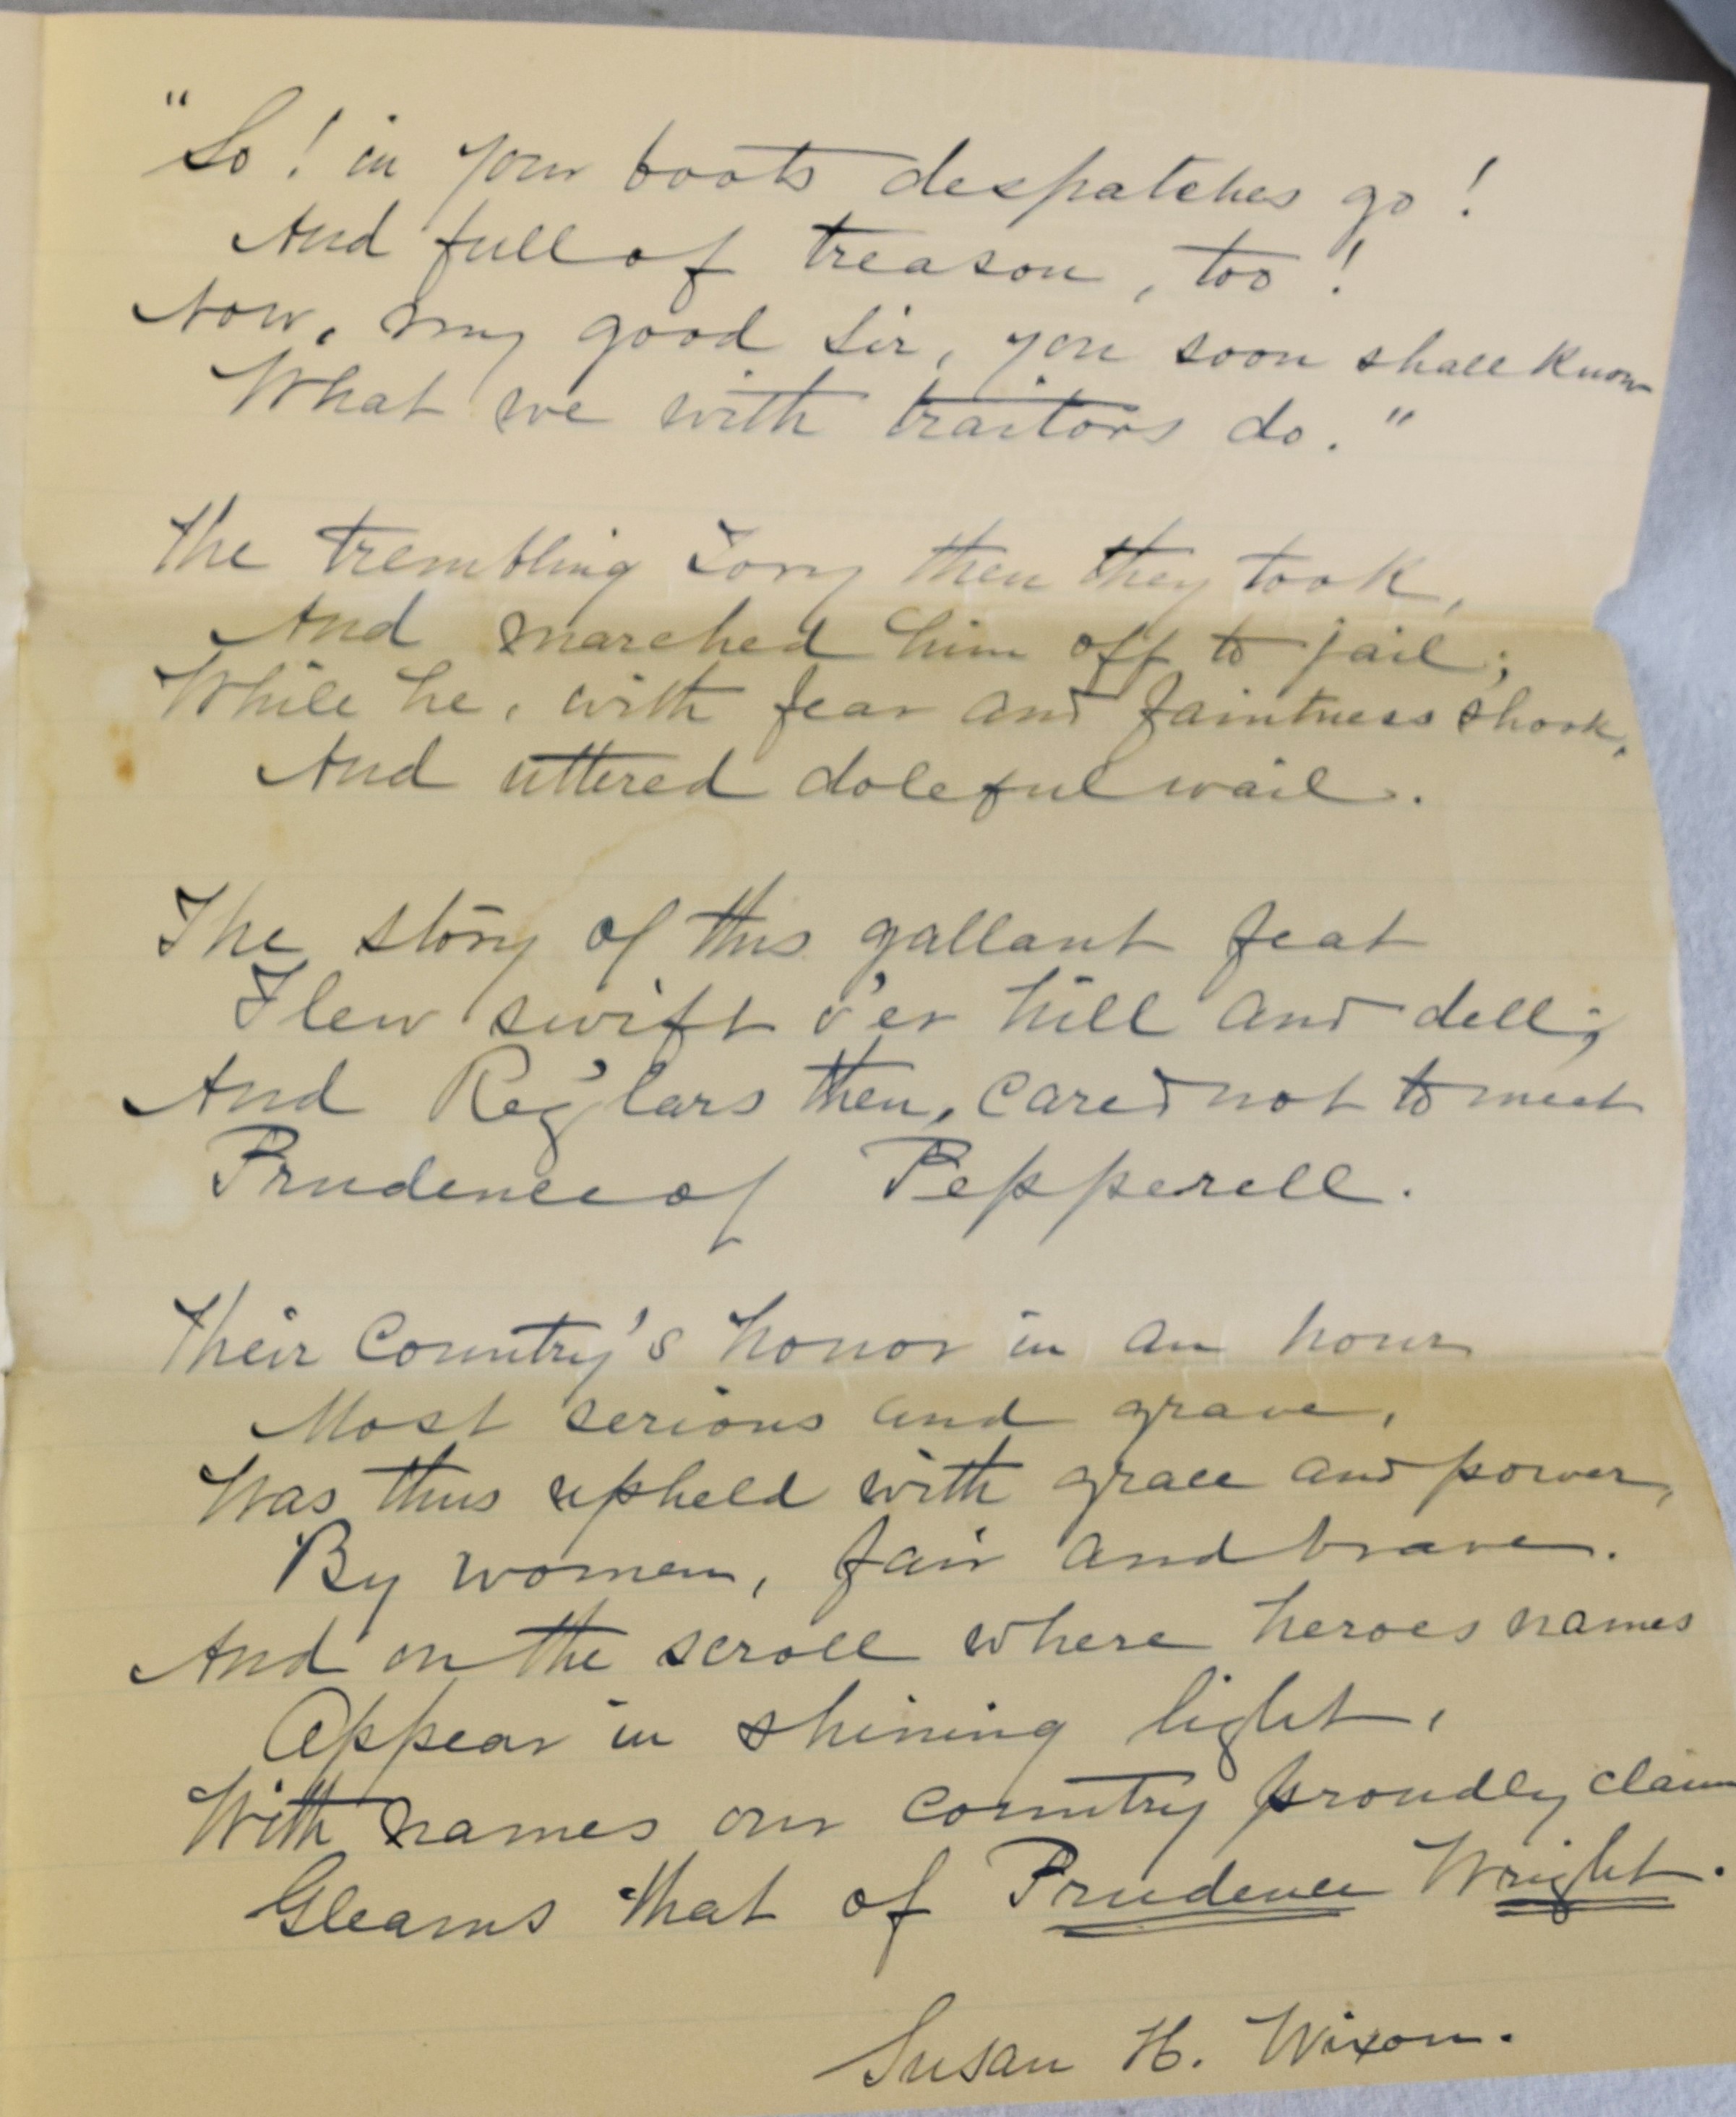 "So! in your boots despatches go!
And full of treason, too!
Now, my good sir, you soon shall know
What we with traitors do."
The trembling Tory then they took,
And marched him off to jail;
While he, with fear and faintness shook,
And uttered doleful wail.
The story of this gallant feat
Flew swift o'er hill and dell;
And Reg'lars then, cared not to meet
Prudence of Pepperell.
Their Country's honor in an hour
Most serious and grave,
Was thus upheld with grace and power,
By women, fair and brave.
And on the scroll where heroes names
Appear in shining light,
With names our country proudly claim
Gleams that of Prudence Wright.
Susan H. Wixon.